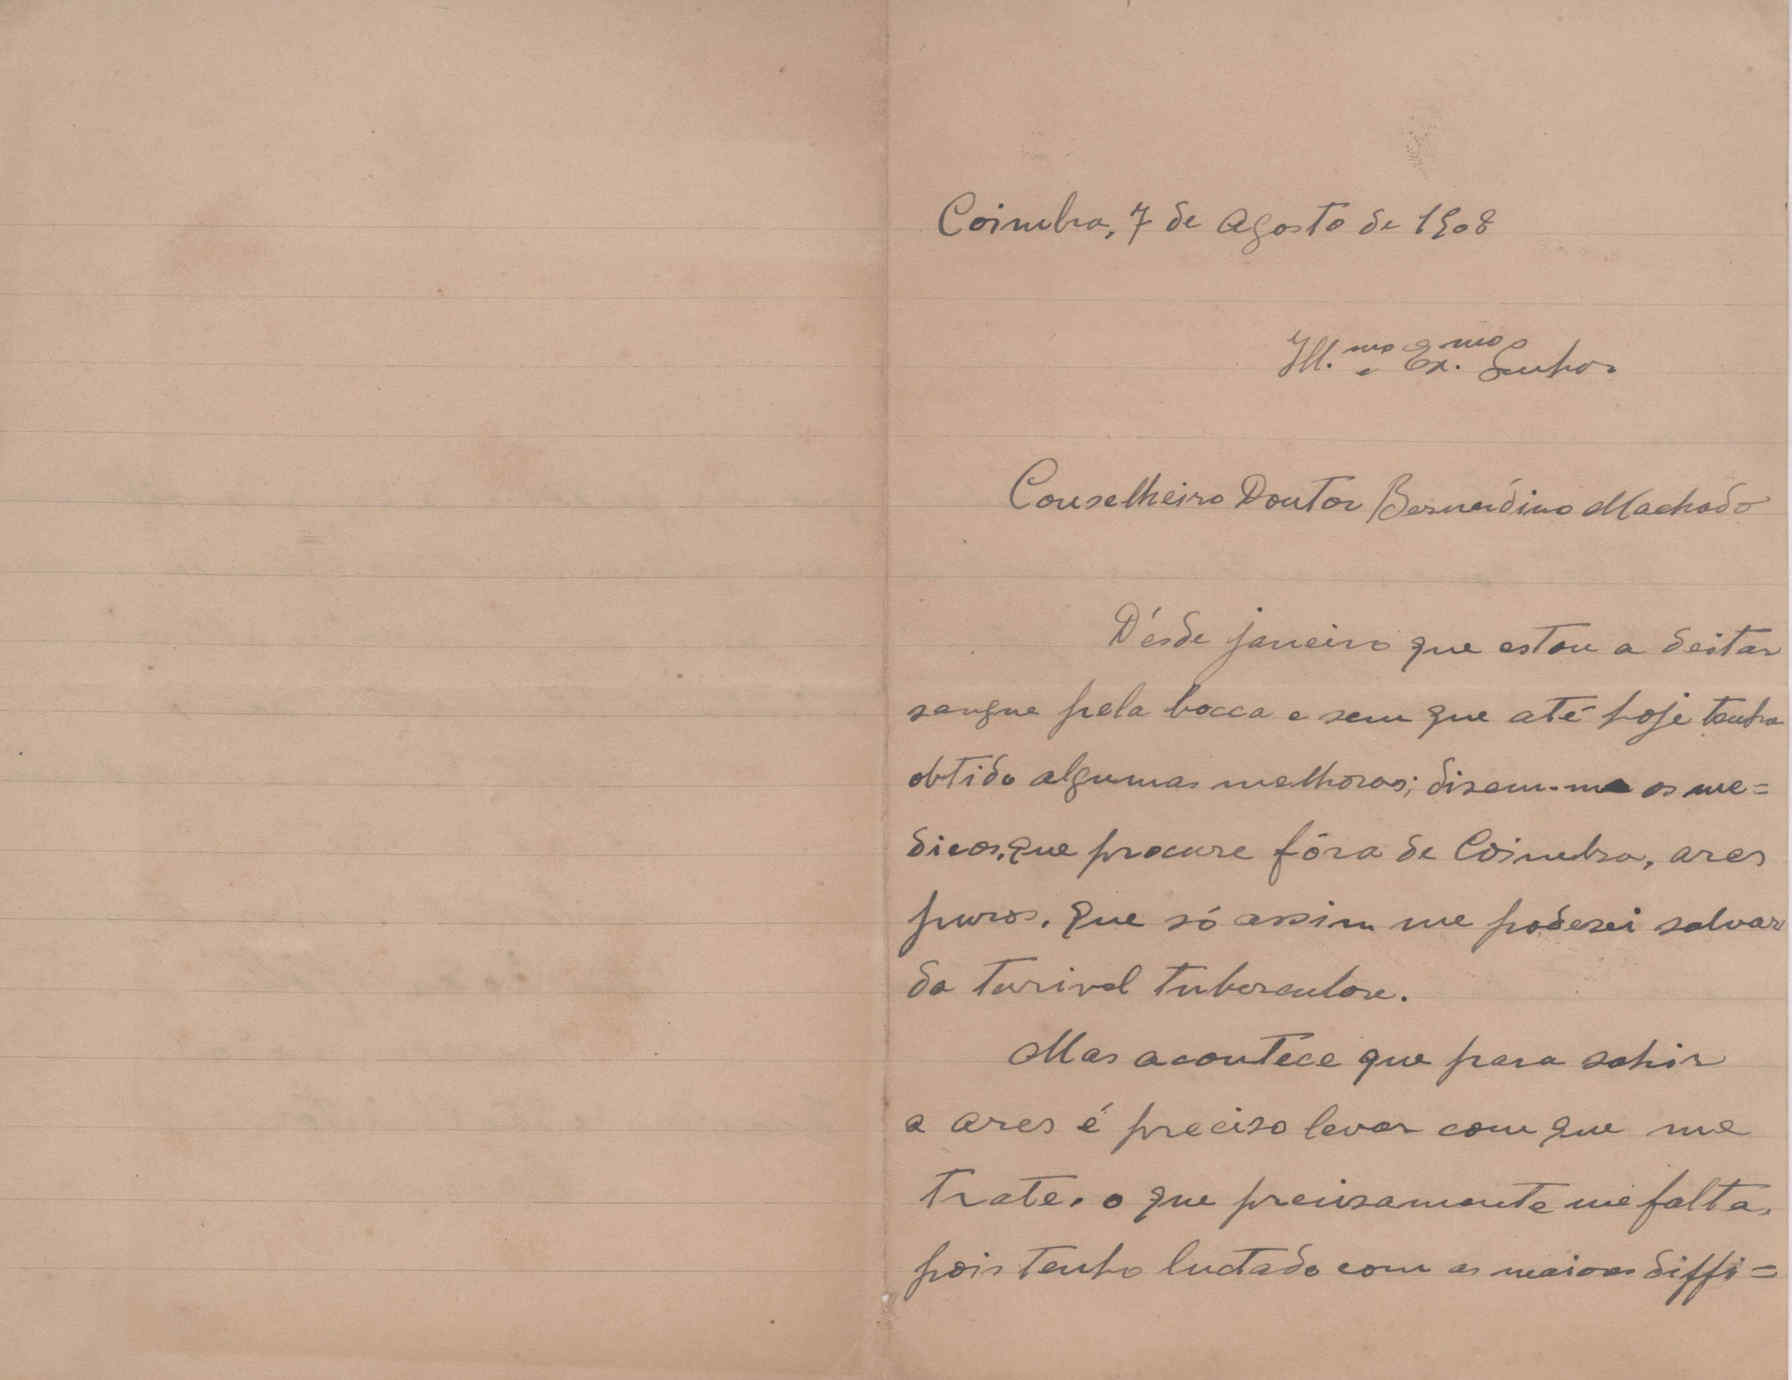 Coimbra, 7 de Agosto de 1908
Ill.mo e Ex.mo Senhor
Conselheiro Doutor Bernardino Machado
Désde janeiro que estou a deitar
sangue pela bocca e sem que até hoje tenha
obtido algumas melhoras; disem-me os me=
dicos, que procure fóra de Coimbra, ares
puros, que só assim me poderei salvar
da terivel tuberculose.
Mas acontece que para sahir
a ares é preciso levar com que me
trate, o que precisamente me falta,
pois tenho luctado com as maiores diffi=